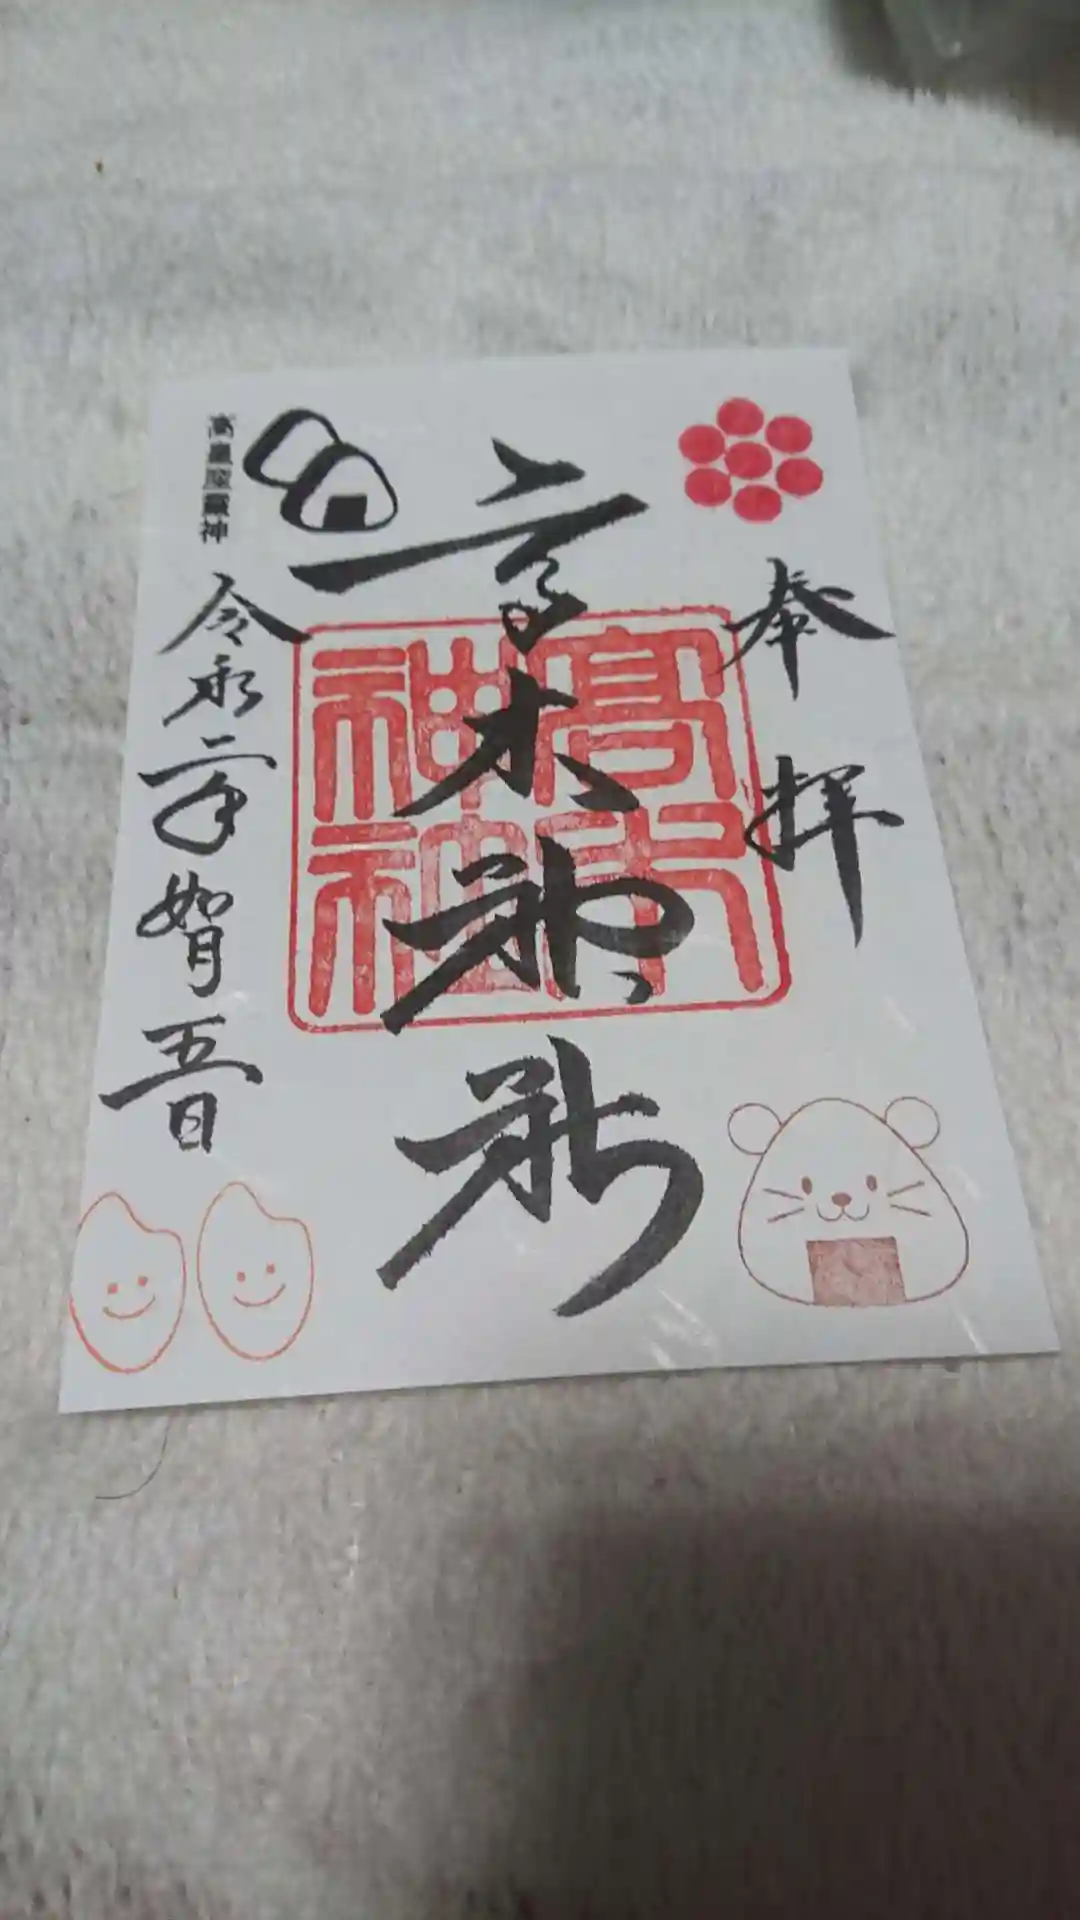 奉拝
高木神社
高木神社
令和二年如月五日
高皇産靈神